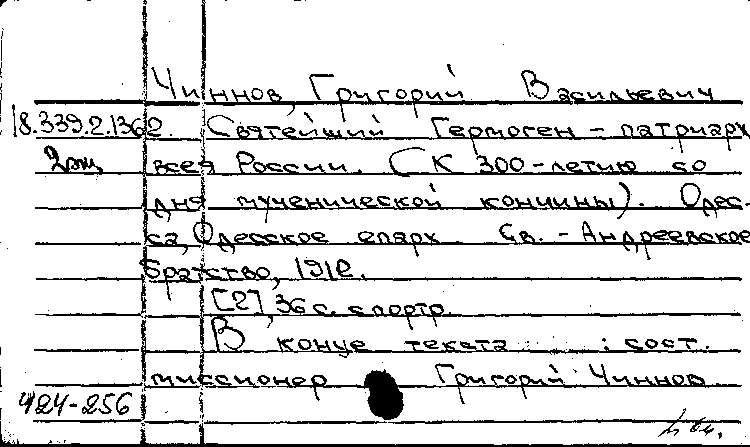 Чиннов, Григорий Васильевич
18.339.2.1362. Святейший Гермоген – патриарх
2экз всея России. (К 300-летию со
дня мученической кончины). Одес-
са, Одесское епарх. Св.-Андреевское
братство, 1912.
[2], 36 с. с портр.
В конце текста : сост.
миссионер Григорий Чиннов
424-256